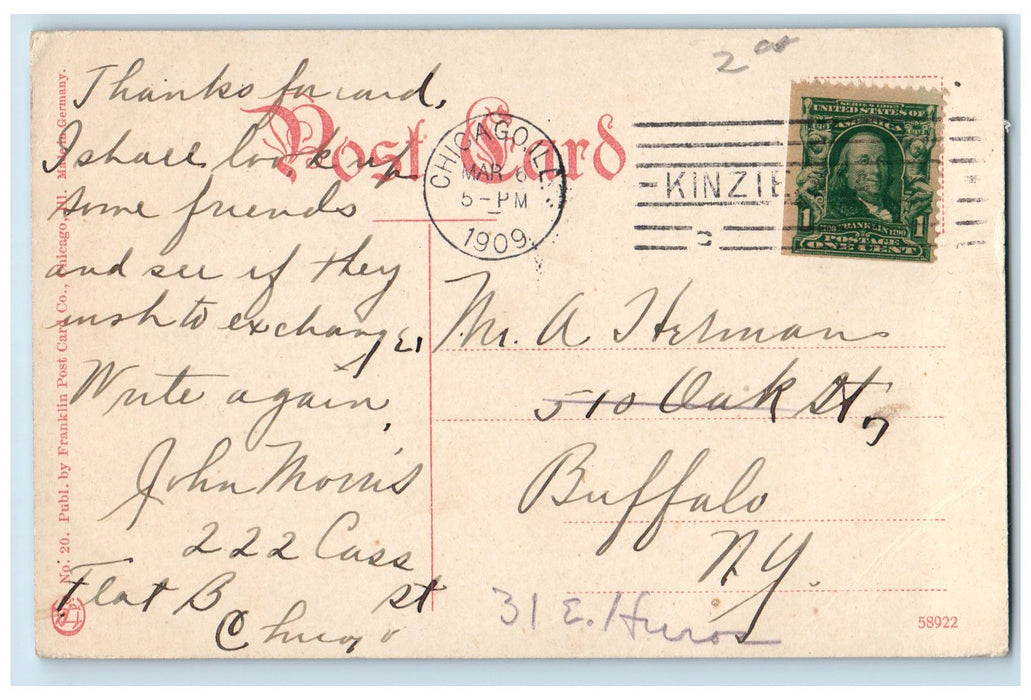 Post Card
2 cts
Thanks for card,
I shall look up
some friends
and see if they
wish to exchange,
Write again,
John Morris
222 Cass
Flat B St
Chicago
CHICAGO, ILL.
MAR 6
5-PM
1909
KINZIE
SERIES 1902
UNITED STATES OF
AMERICA
FRANKLIN 1790
POSTAGE
1 1
ONE CENT
Mr. A Hermans
510 Oak St,
Buffalo
N.Y.
31 E. Huron
58922
No. 20. Publ. by Franklin Post Card Co., Chicago, Ill. Made in Germany.